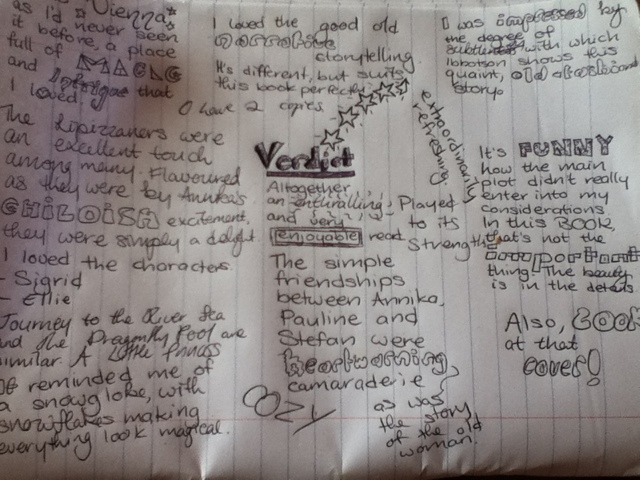 as I'd Vienna
it before, a place never seen
full of MAGIC
and intrigue that
I loved.
The Lipizzaners were
an excellent touch
among many. Flavoured
as they were by Annika's
CHILDISH excitement,
they were simply a delight.
I loved the characters.
- Sigrid
- Ellie
Journey to the River Sea
and the Dragonfly Pool are
similar. A Little Princess
It reminded me of
a snowglobe, with
snowflakes making
everything look magical.
I loved the good old
storytelling.
It's different, but suits
this book perfectly.
I have 2 copies
Verdict
Altogether,
an enthralling,
and very
enjoyable read
Played
to its
strengths
extraordinarily
refreshing.
The simple
friendships
between Annika,
Pauline and
Stefan were
heartwarming,
camaraderie
COZY
as was
the story
of the old
woman.
I was impressed by
the degree of
with which
Ibbotson shows this
quaint, old
story.
It's FUNNY
how the main
plot didn't really
enter into my
considerations
In this BOOK,
that's not the
important
thing. The beauty
is in the details.
Also, LOOK
at that
cover!